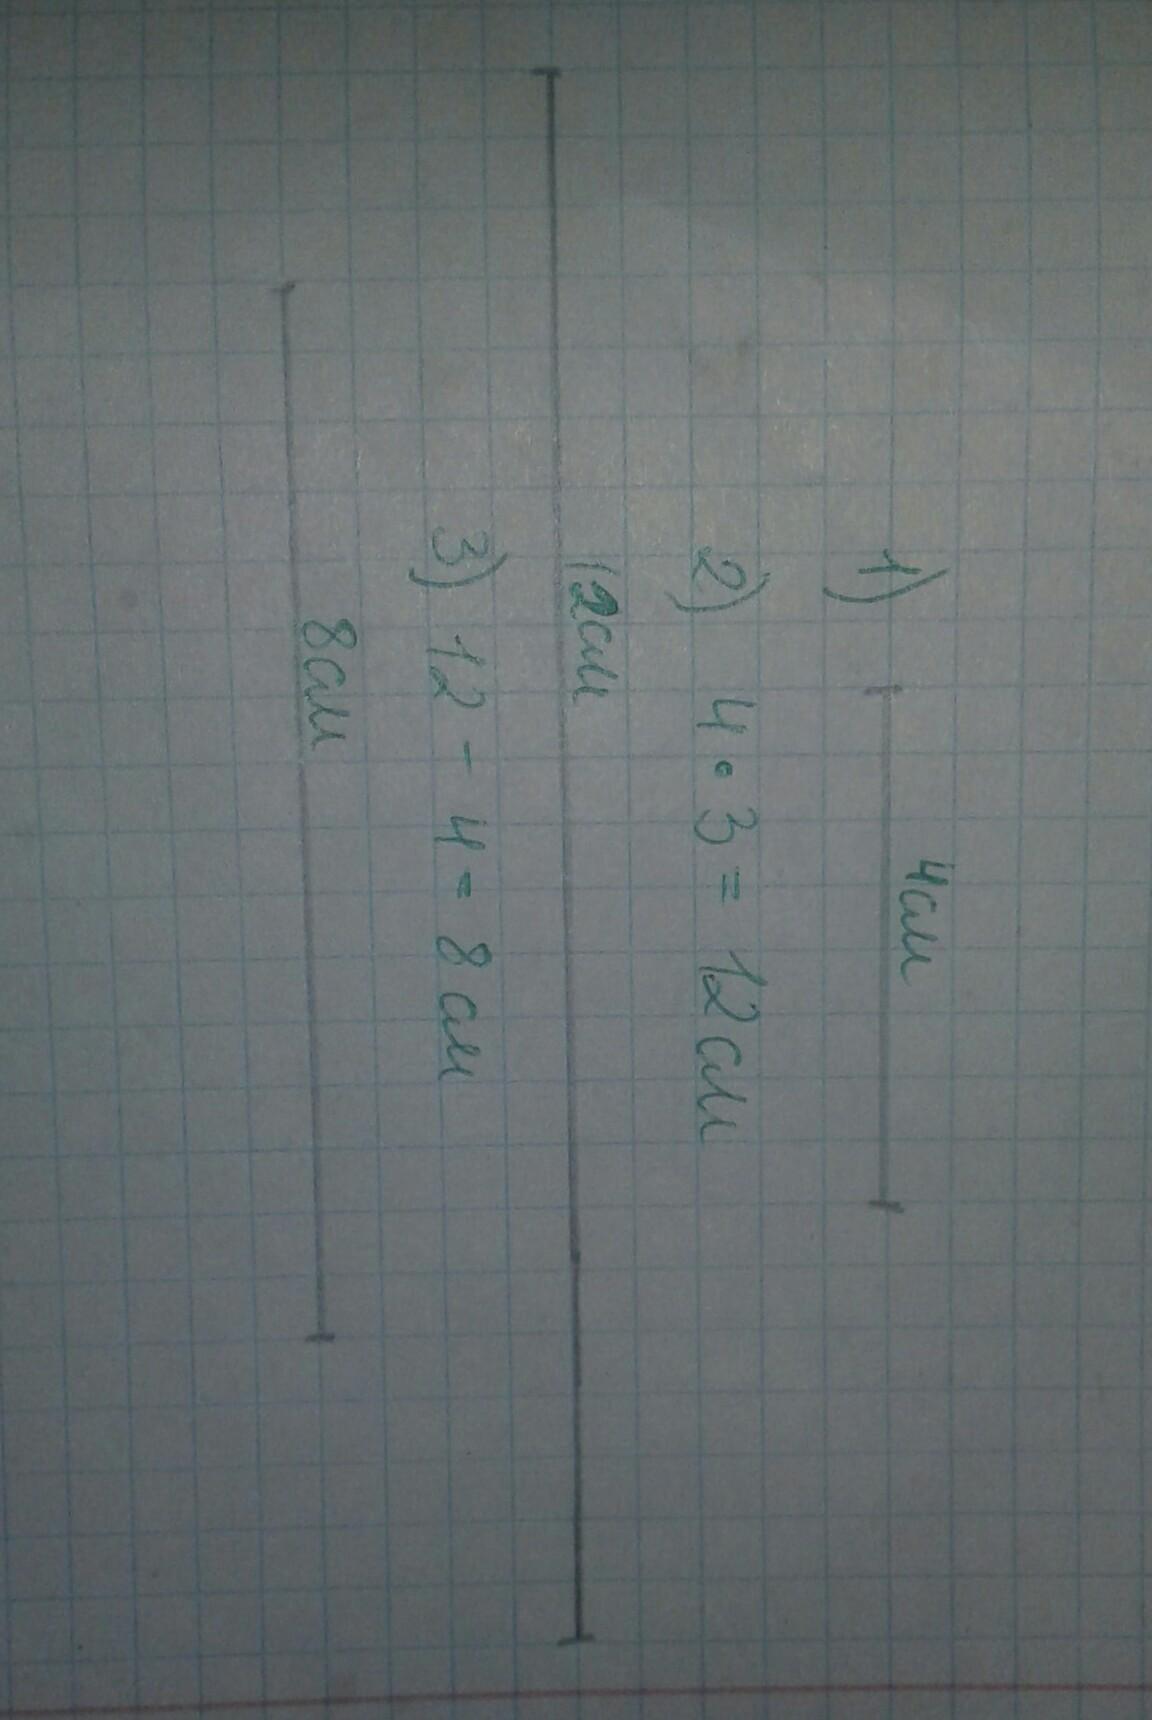 4см
1)
2) 4 • 3 = 12 см
12см
3) 12 - 4 = 8 см
8см